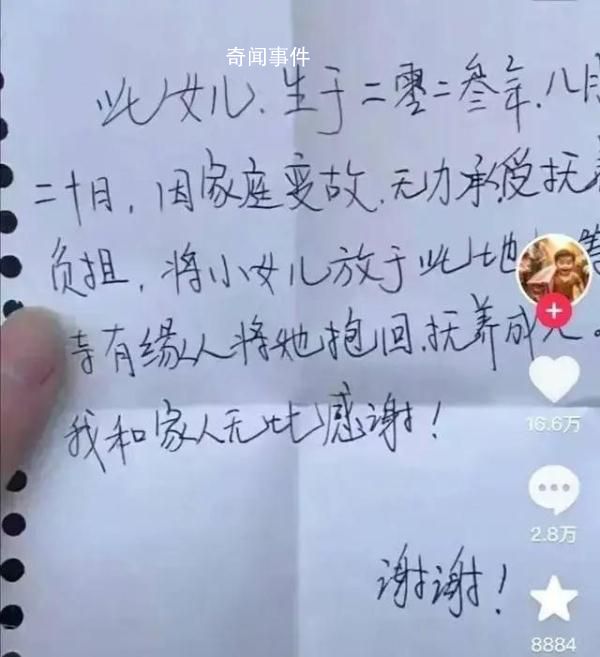 奇闻事件
此女儿.生于二零二叁年.八月
二十日,因家庭变故.无力承受抚养
负担,将小女儿放于此地 等
待有缘人将她抱回.抚养成人。
我和家人无比感谢!
谢谢!
16.6万
2.8万
8884